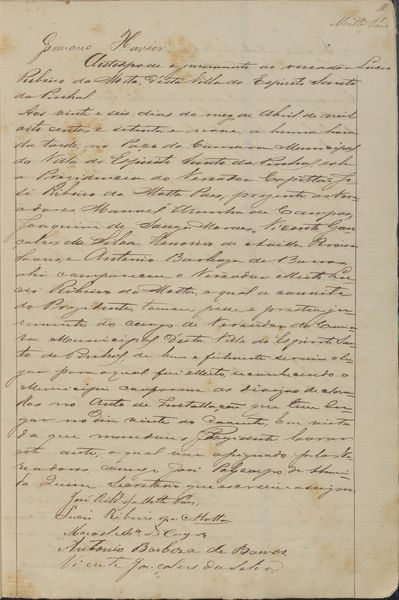 Motta Paes
Germano Xavier
Auto de posse e juramento ao vereador Lucio
Ribeiro da Motta desta Villa do Espirito Santo
do Pinhal
Aos vinte e seis dias do mez de Abril de mil
oito centos e setenta e nove, a huma hora
da tarde no Paço da Camara Municipal
da Villa do Espirito Santo do Pinhal, sob
a Presidencia do Vereador Capitão Jo
sé Ribeiro da Motta Paes, presente os Ve
readores Manuel Aranha de Campos,
Joaquim de Souza Moraes, Vicente Gon
calves da Silva, de Almeida
e Antonio Barboza de Barros
ahi compareceu o Vereador eleito Lu
cio Ribeiro da Motta, o qual a convite
do Prezidente, tomou posse e prestou ju
ramento do cargo de Vereador da Cama
ra Municipal desta Villa do Espirito San
to do Pinhal, de bem e fielmente servir o lu
gar para o qual foi eleito,
Municipio conforme
no Auto de Installação que teve lu
gar no dia vinte do corrente. Em vista
do que mandou o Prezidente lavrar
este auto, o qual vai assignado pelos Ve
readores, eu José de Almei
da Secretario que escrevi e assigno.
José Rib.º da Motta Paes.
Lucio Ribeiro da Motta
Manoel Ar.ª de Campos
Antonio Barboza de Barros
Vicente Gonçalves da Silva